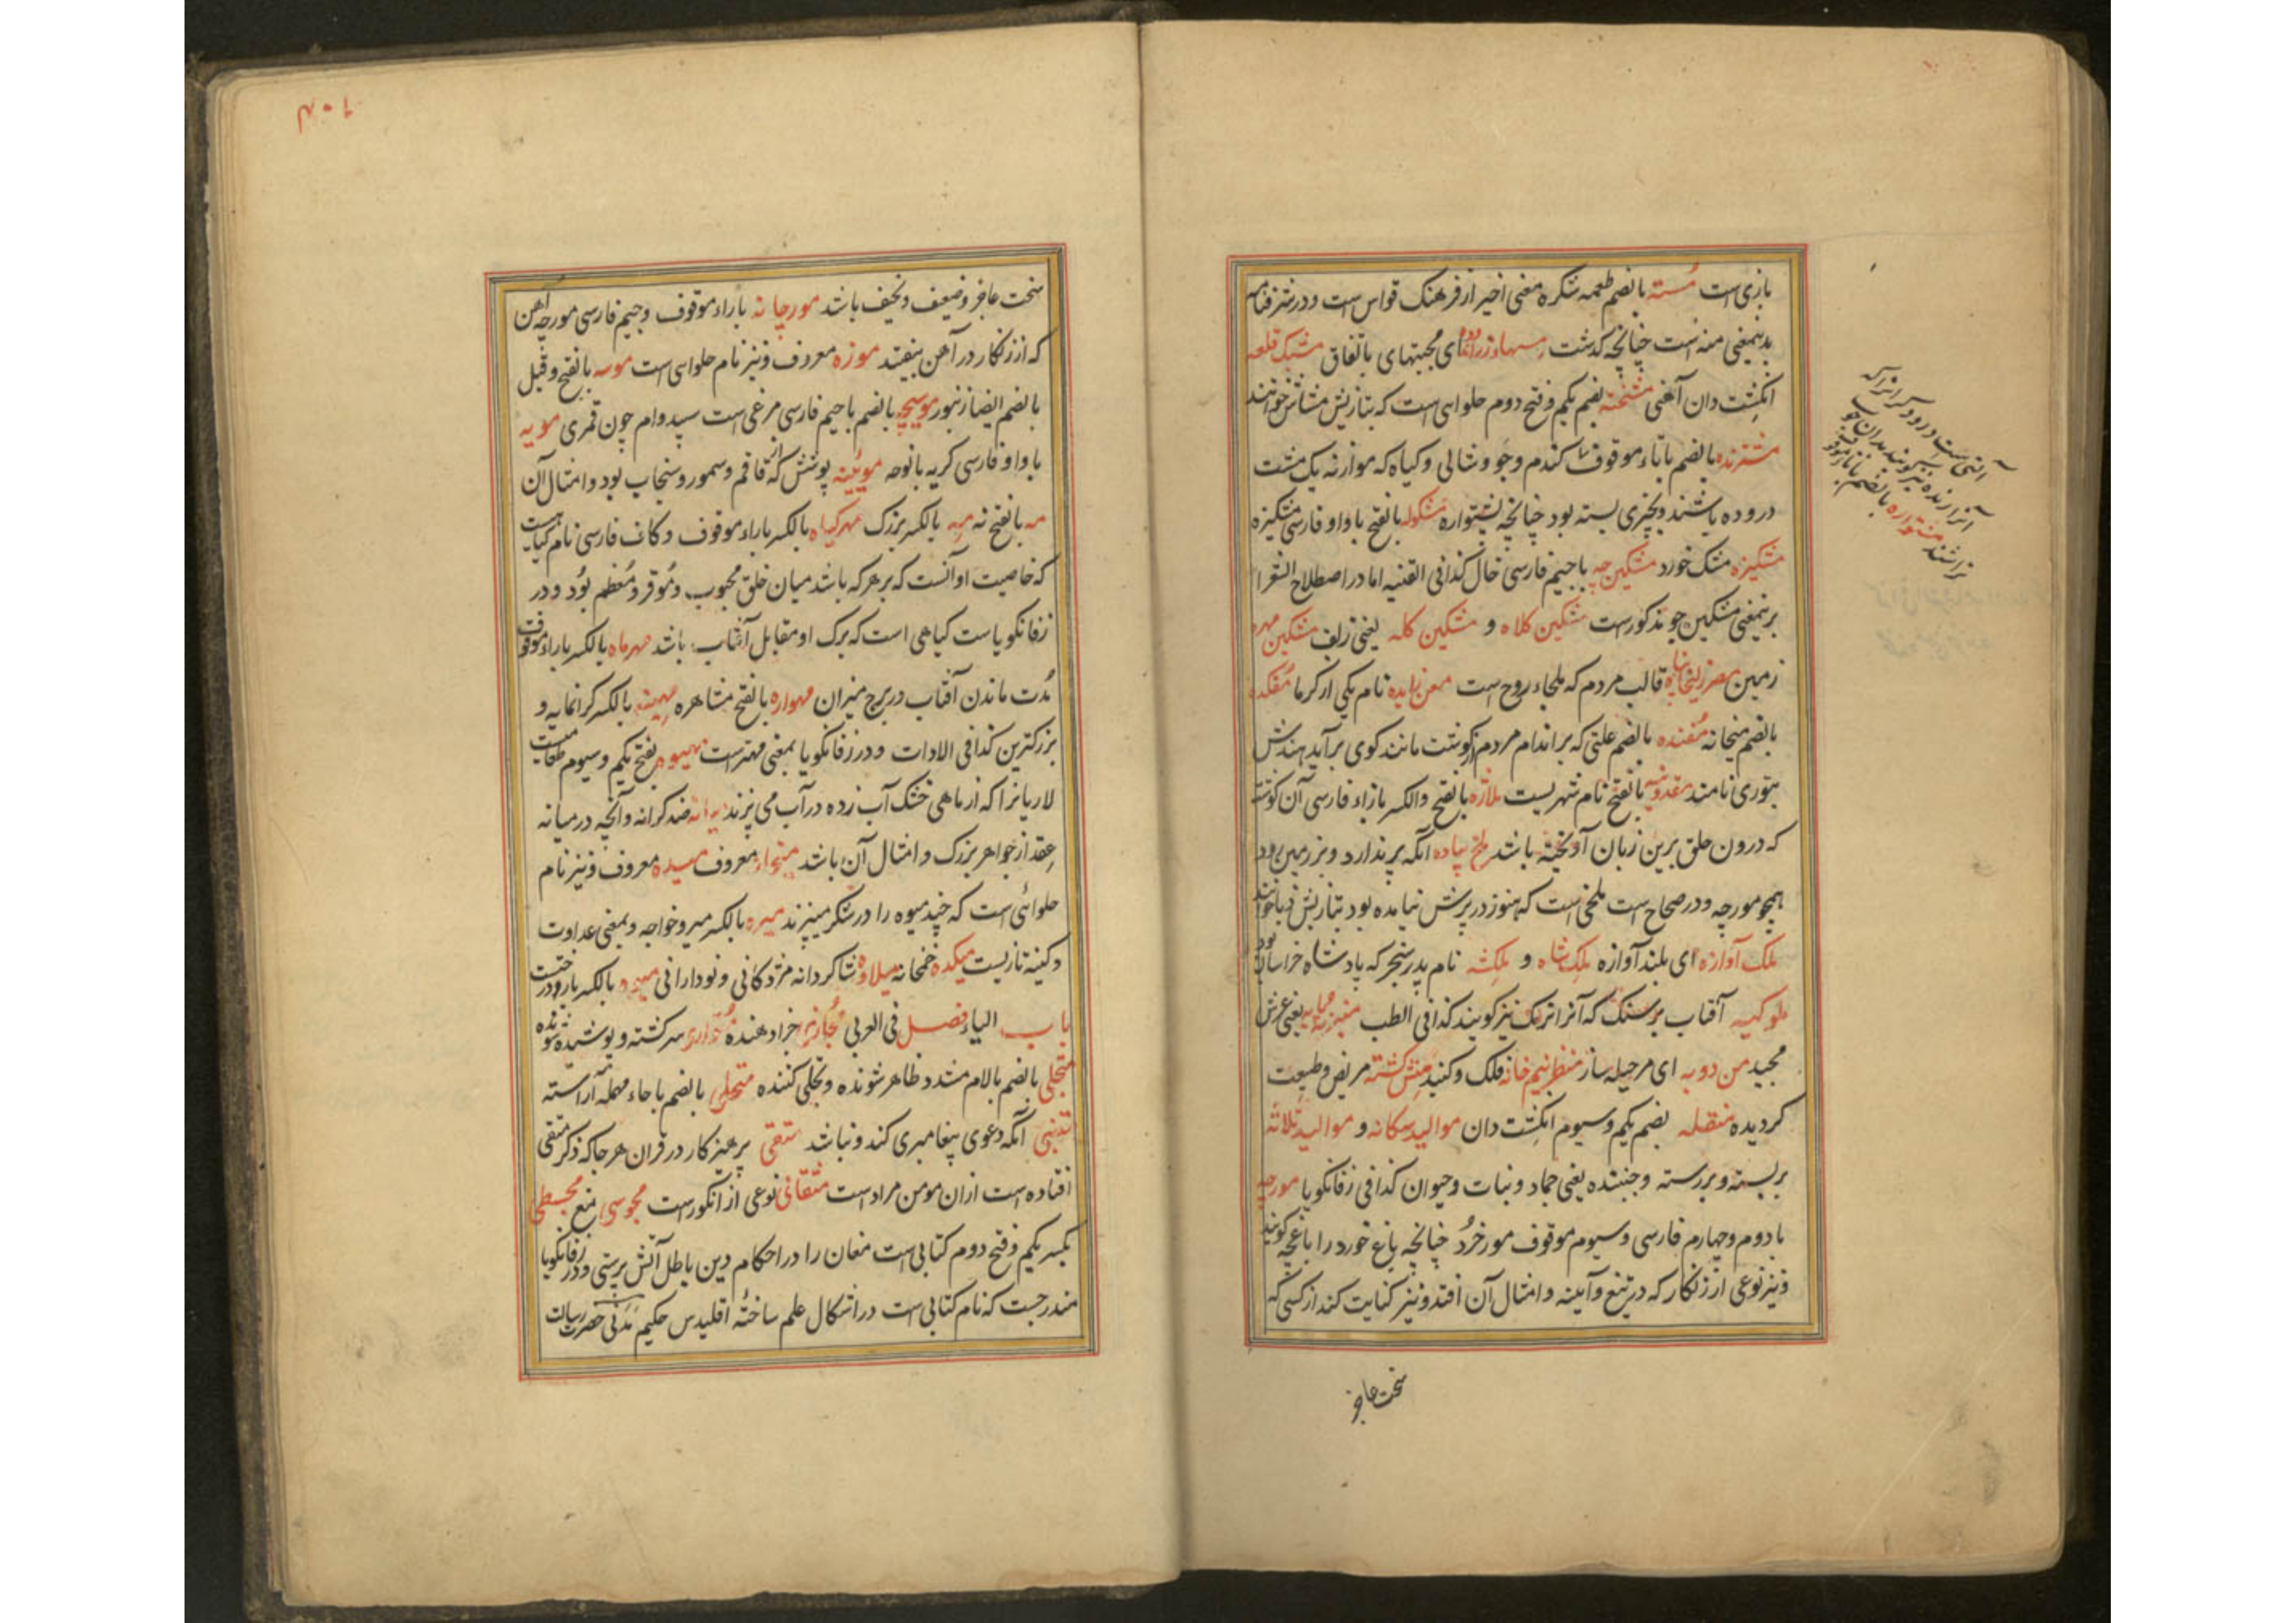 بازی است مُسته بالضم طعمه شکره معنی اخیر از فرهنک قواس است و در شرفنامه
بدینمعنی منه است چنانچه کذشت ای مجبتهای باتفاق مشبک قلعه
انکشت دان آهنی مشخته بضم یکم و فتح دوم حلوایی است که بتازیش مشاش خوانند
مشترنده بالضم با تاء موقوف کندم و جو و شالی و کیاه که موازنه یک مشت
دروده باشند و بچیزی بسته بود چنانچه پشتواره مشکوله بالفتح با واو فارسی مشکیزه
مشکیزه مشک خورد مشکین چه با جیم فارسی خال کذا فی القنیه اما در اصطلاح الشعرا
برینمعنی مشکین جو مذکورست مشکین کلاه و مشکین کله یعنی زلف مشکین مهره
زمین قالب مردم که ملجاء روح است معن زایده نام یکی از کرما مُفکده
بالضم میخانه مُغنده بالضم علتی که بر اندام مردم از کوشت مانند کوی برآید هندش
بتوری نامند مقدونیه بالفتح نام شهریست ملازه بالفتح والکسر با زاء فارسی آن کوشت
که درون حلق برین زبان آویخته باشد ملخ پیاده آنکه پر ندارد و بر زمین رود
همچو مورچه و در صحاح است ملخی است که هنوز در پرش نیامده بود بتازیش دبا خوانند
ملک آوازه ای بلند آوازه ملک شاه و ملکشه نام پدر سنجر که پادشاه خراسان بود
ملوکیه آفتاب پرستک که آنرا ترنک نیز کویند کذا فی الطب یعنی عرش
مجید من دویه ای مرحیله ساز منظر نیم خانه فلک و کنبد منش کشته مریض و طبیعت
کردیده منقله بضم یکم و سیوم انکشت دان موالید سکانه و موالید ثلاثه
بربسته و بررسته و جنبنده یعنی جماد و نبات و حیوان کذا فی زفانکویا مورچه
با دوم و چهارم فارسی و سیوم موقوف مور خُرد چنانچه باغ خورد را باغچه کویند
و نیز نوعی از زنکار که در تیغ و آیینه و امثال آن افتد و نیز کنایت کند از کسی که
سخت عاجز
آلتی است درودکر انرا که
آنرا رنده نیز کویند بدان چوب
تراشند مشتواره بالضم با تاء موقوف
سخت عاجز و ضعیف و نحیف باشد مورچانه با راء موقوف و جیم فارسی مورچه آهن
که از زنکار در آهن بیفتد موزه معروف و نیز نام حلوایی است موسه بالفتح و قیل
بالضم ایضا زنبور موسیچه بالضم با جیم فارسی مرغی است سپید وام چون قمری مویه
با واو فارسی کریه با نوحه موئینه پوشش که از قاقم و سمور و سنجاب بود و امثال آن
مه بالفتح نه مِه بالکسر بزرک مهرکیاه بالکسر با راء موقوف و کاف فارسی نام کیاهیست
که خاصیت او آنست که بر هر که باشد میان خلق محبوب و مُوقر و مُعظم بُود و در
زفانکویا ست کیاهی است که برک او مقابل آفتاب باشد مهرماه بالکسر با راء موقوف
مُدت ماندن آفتاب در برج میزان مهواره بالفتح مشاهره مهینه بالکسر کرانمایه و
بزرکترین کذا فی الادات و در زفانکویا بمعنی مهترست مهیوه بفتح یکم و سیوم طعامیست
لاریانرا که از ماهی خشک آب زده در آب می پزند میانه ضد کرانه و آنچه در میانه
عِقد از جواهر بزرک و امثال آن باشد معروف میده معروف و نیز نام
حلوائی است که چند میوه را در شکر میپزند میره بالکسر میر و خواجه و بمعنی عداوت
و کینه تازیست میکده خمخانه میلاوه شاکردانه مژدکانی و نودارانی بالکسر بار و درخت
باب الیاء فصل فی العربی مُجازی جزا دهنده مُتواری سرکشته و پوشیده شونده
متجلی بالضم بالام مشدد ظاهر شونده و تجلی کننده متحلی بالضم با حاء مهمله آراسته
متنبی آنکه دعوی پیغامبری کند و نباشد متقی پرهیزکار در قران هر جا که ذکر متقی
افتاده است ازان مومن مراد است متقانی نوعی از انکورست مجوسی مغ مجسطی
بکسر یکم و فتح دوم کتابی است مغان را در احکام دین باطل آتش پرستی و در زفانکویا
مندرجست که نام کتابی است در اشکال علم ساخته اقلیدس حکیم مَدَنی حضرت رسالت